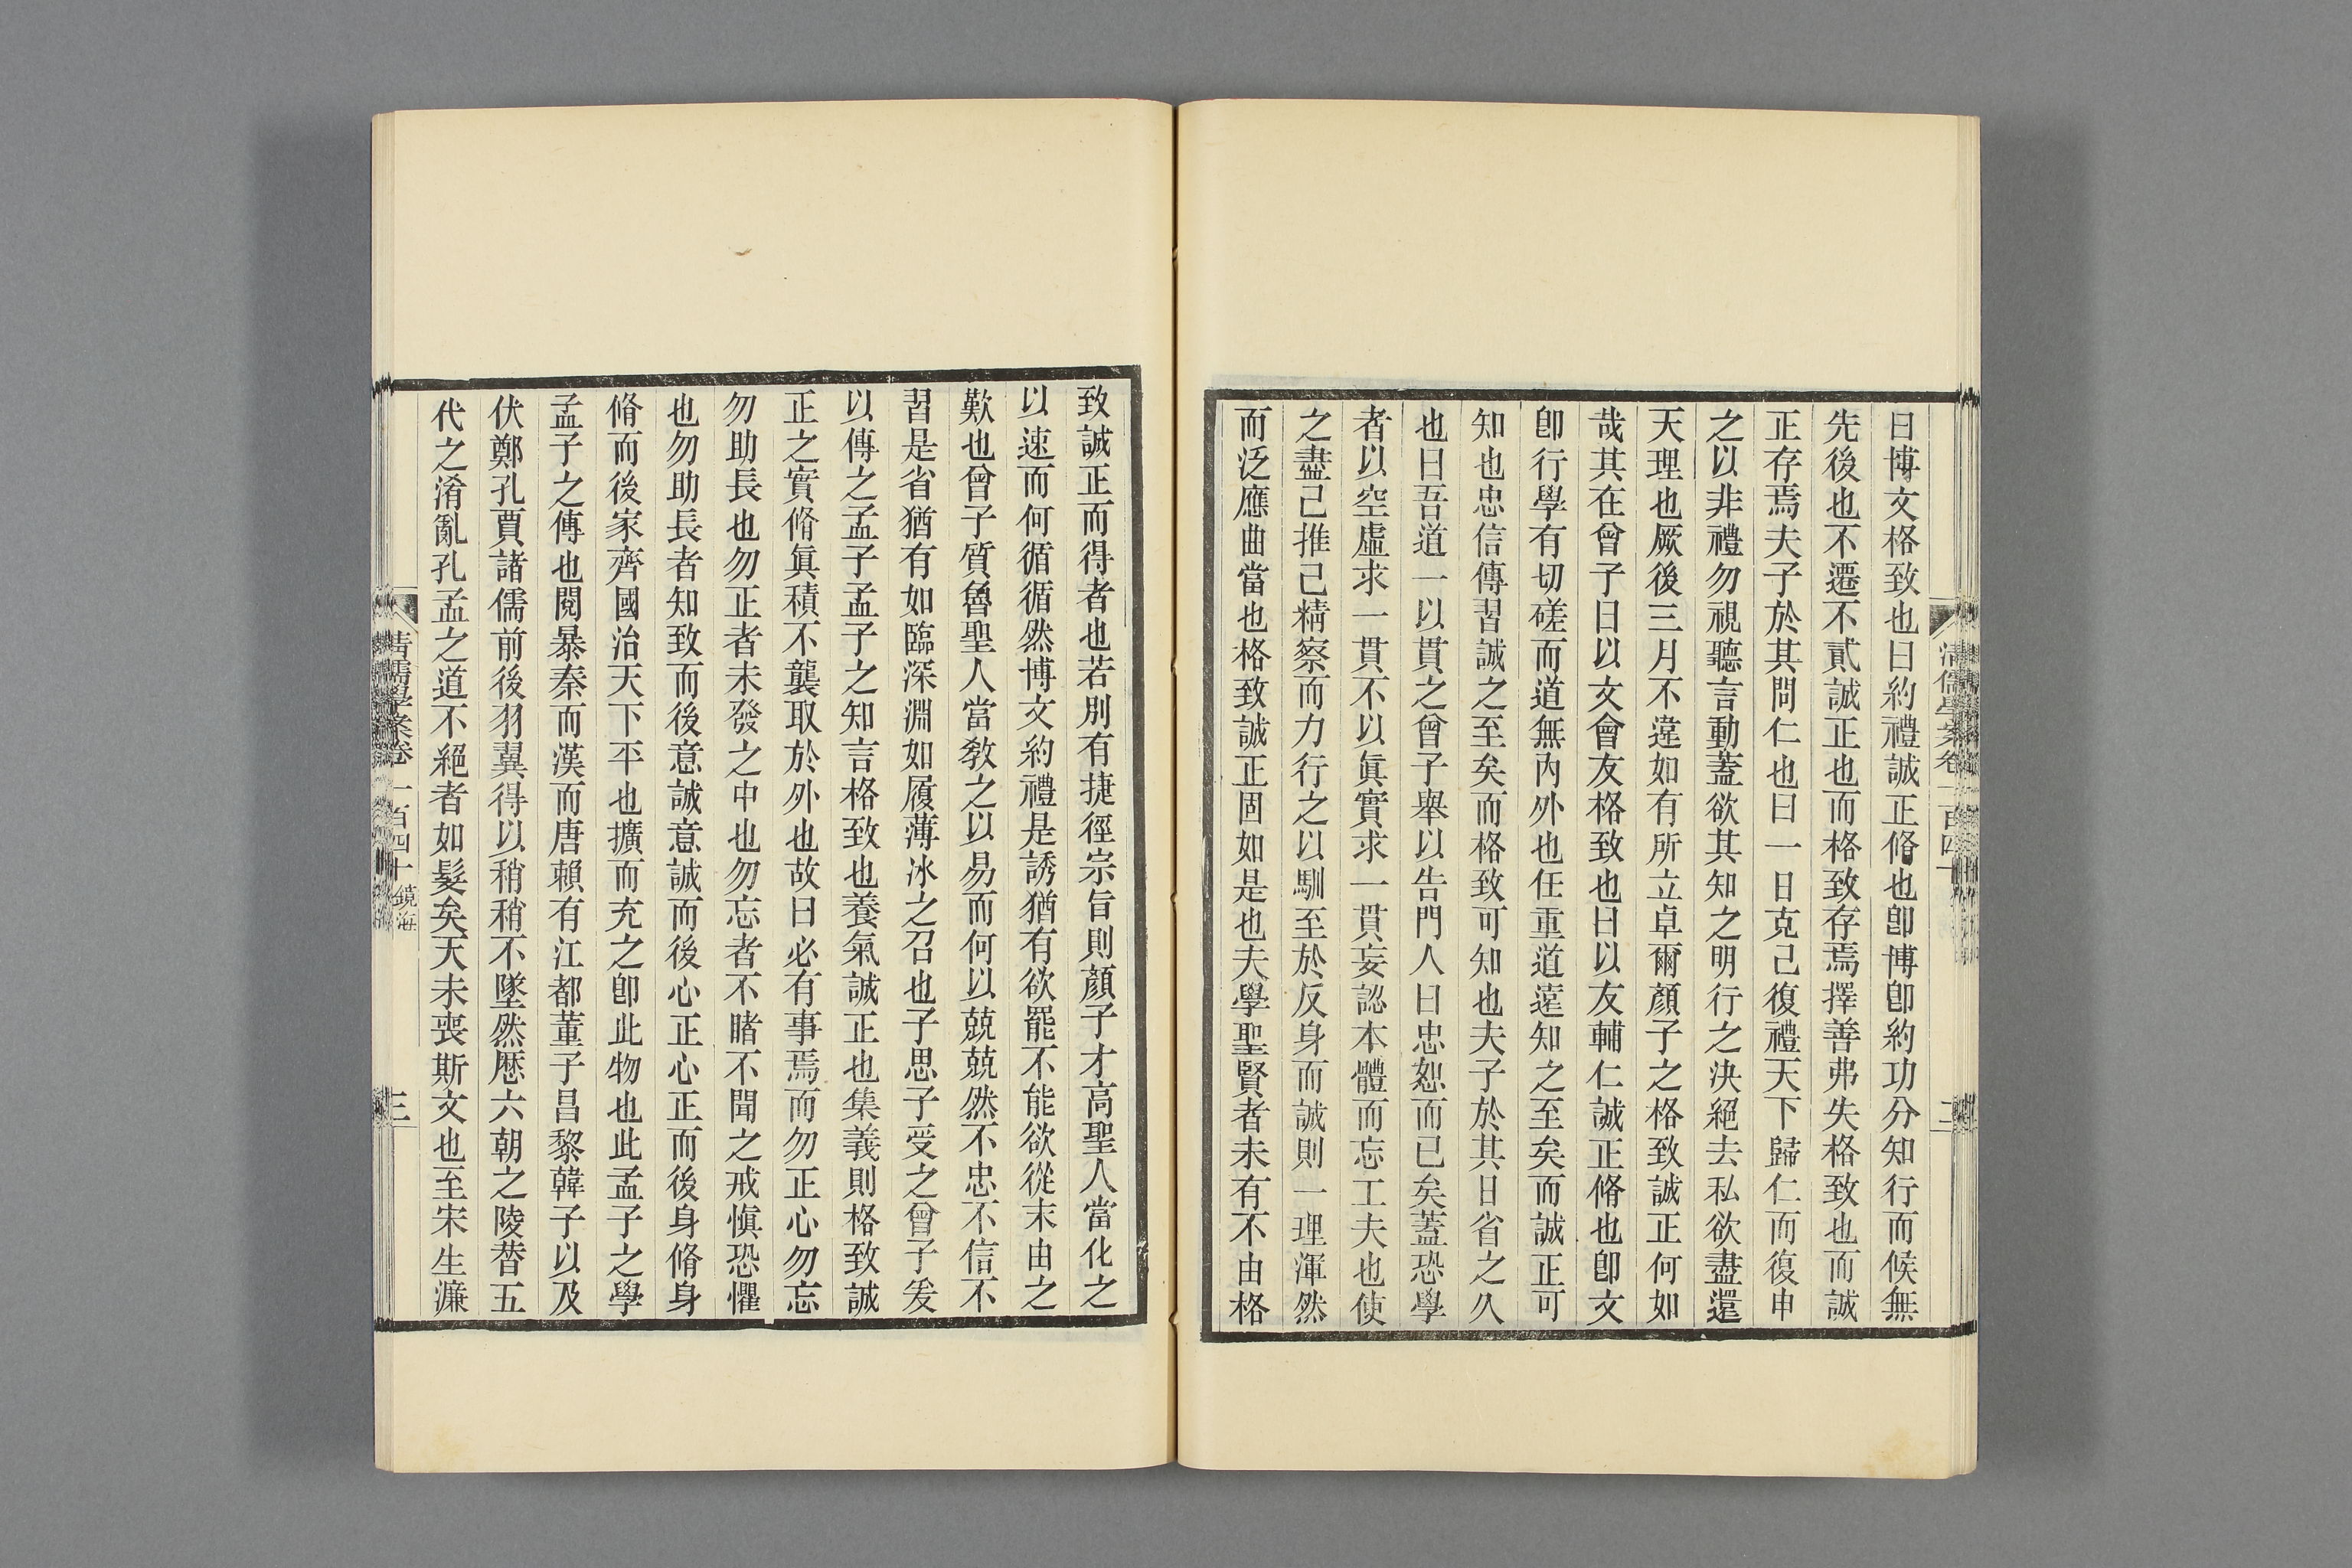 曰博文格致也曰約禮誠正脩也卽博卽約功分知行而候無
先後也不遷不貳誠正也而格致存焉擇善弗失格致也而誠
正存焉夫子於其問仁也曰一日克己復禮天下歸仁而復申
之以非禮勿視聽言動蓋欲其知之明行之決絕去私欲盡還
天理也厥後三月不違如有所立卓爾顏子之格致誠正何如
哉其在曾子曰以文會友格致也曰以友輔仁誠正脩也卽文
卽行學有切磋而道無內外也任重道遠知之至矣而誠正可
知也忠信傳習誠之至矣而格致可知也夫子於其日省之久
也曰吾道一以貫之曾子舉以告門人曰忠恕而已矣蓋恐學
者以空虛求一貫不以眞實求一貫妄認本體而忘工夫也使
之盡己推己精察而力行之以馴至於反身而誠則一理渾然
而泛應曲當也格致誠正固如是也夫學聖賢者未有不由格
清儒學案卷一百四十
三
致誠正而得者也若別有捷徑宗旨則顏子才高聖人當化之
以速而何循循然博文約禮是誘猶有欲罷不能欲從末由之
歎也曾子質魯聖人當敎之以易而何以兢兢然不忠不信不
習是省猶有如臨深淵如履薄冰之召也子思子受之曾子爰
以傳之孟子孟子之知言格致也養氣誠正也集義則格致誠
正之實脩眞積不襲取於外也故曰必有事焉而勿正心勿忘
勿助長也勿正者未發之中也勿忘者不睹不聞之戒愼恐懼
也勿助長者知致而後意誠意誠而後心正心正而後身脩身
脩而後家齊國治天下平也擴而充之卽此物也此孟子之學
孟子之傳也閱暴秦而漢而唐賴有江都董子昌黎韓子以及
伏鄭孔賈諸儒前後羽翼得以稍稍不墜然歷六朝之陵替五
代之淆亂孔孟之道不絕者如髮矣天未喪斯文也至宋生濂
清儒學案卷一百四十 鏡海
三